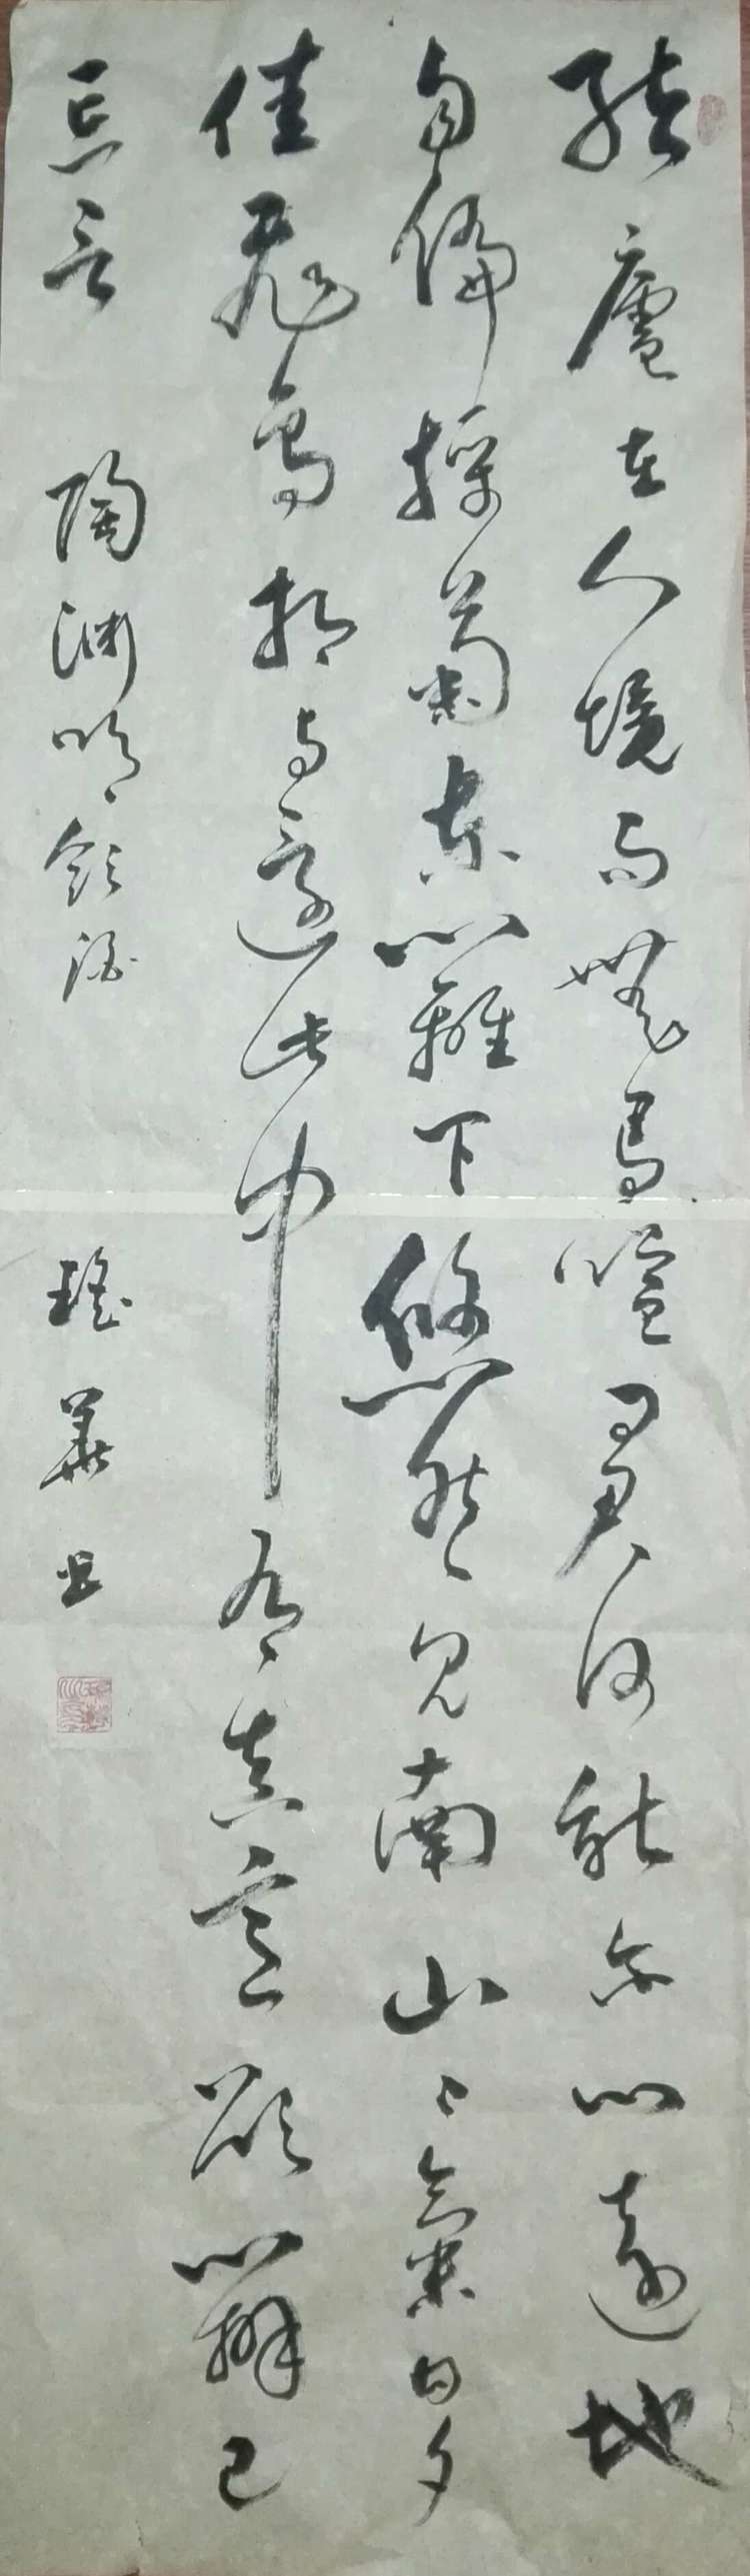 結廬在人境而無馬喧问君何能尔心遠地
自偏採菊東籬下悠然见南山々氣日夕
佳飛鳥相与還此中有真意欲辨已
忘言 陶渊明飲酒 瑤華书